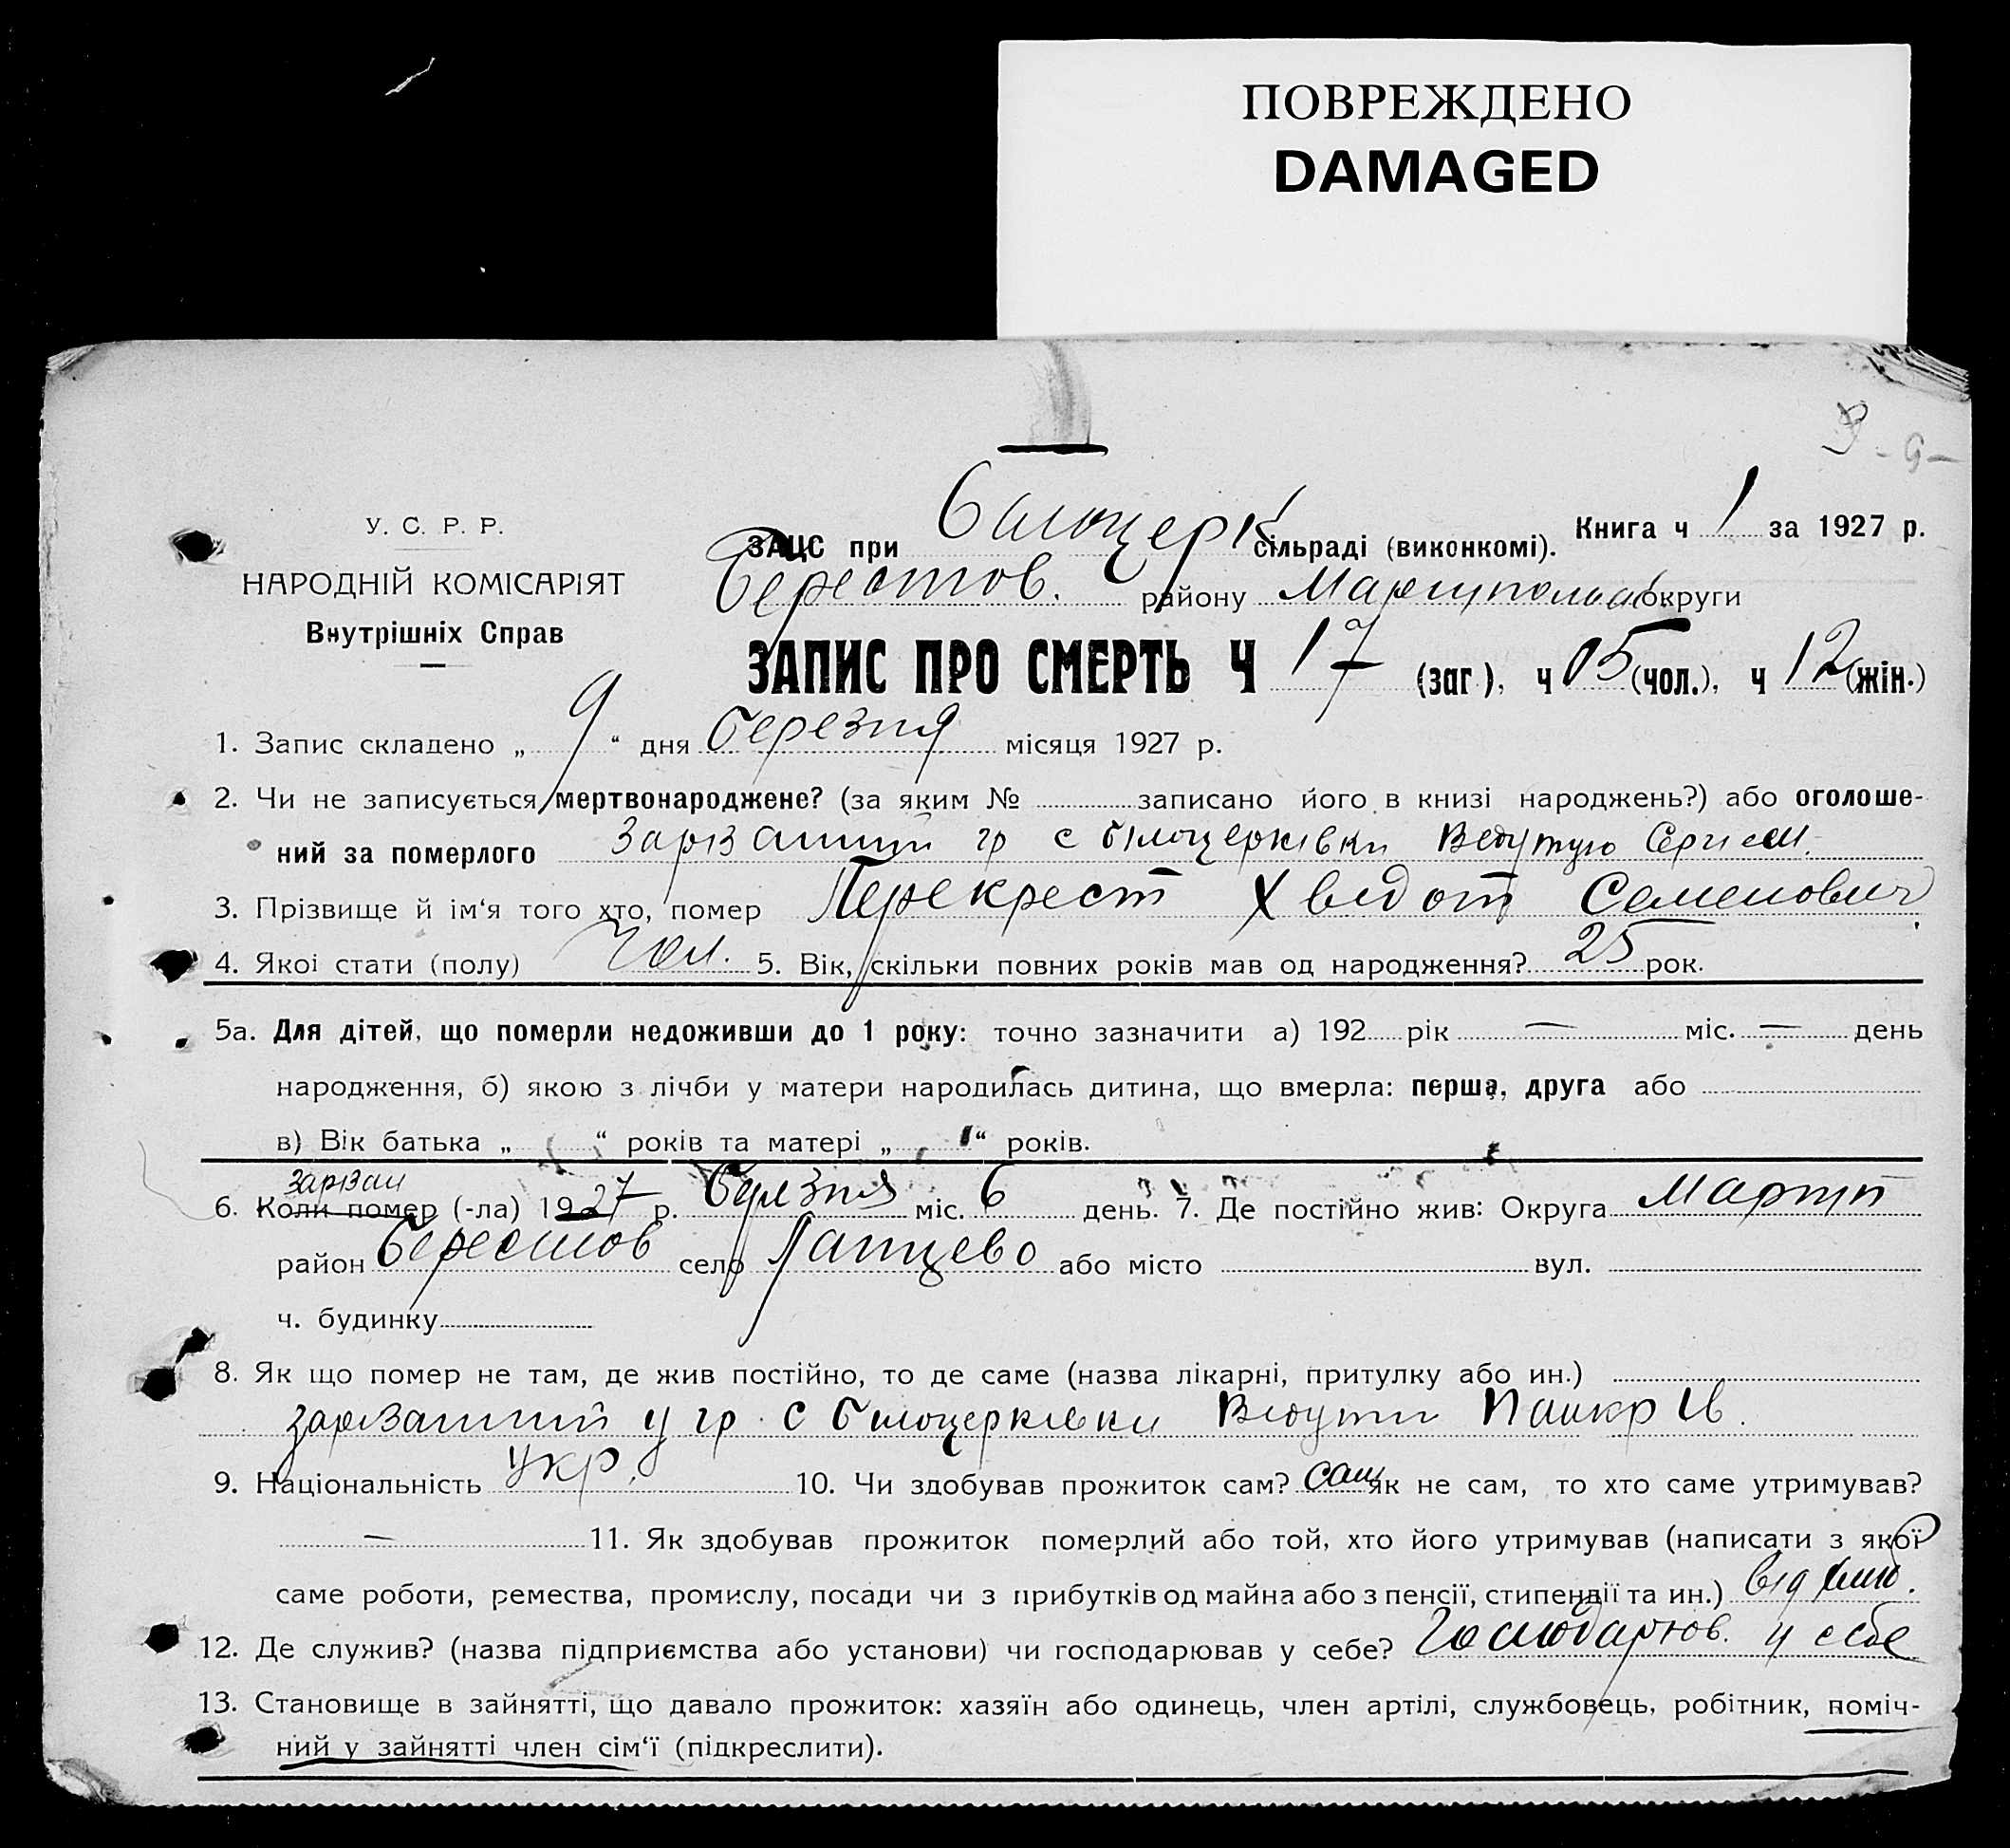 ПОВРЕЖДЕНО
DAMAGED
У. С. Р. Р.
НАРОДНІЙ КОМІСАРІЯТ
Внутрішніх Справ
Книга ч 1 за 1927 р.
ЗАЦС при Білоцерк сільраді (виконкомі).
Берестов. району Маріупольськ округи
ЗАПИС ПРО СМЕРТЬ Ч 17 (заг.), ч 05 (чол.), ч 12 (жін.)
1. Запис складено „ 9 “ дня березня місяця 1927 р.
2. Чи не записується мертвонароджене? (за яким № записано його в книзі народжень?) або оголоше-
ний за померлого гр с білоцерківки
3. Прізвище й ім‘я того хто, помер Перекрест Хведот Семенович
4. Якоі стати (полу) Чол. 5. Вік, скільки повних років мав од народження? 25 рок.
5а. Для дітей, що померли недоживши до 1 року: точно зазначити а) 192 рік — міс. — день
народження, б) якою з лічби у матери народилась дитина, що вмерла: перша, друга або
в) Вік батька „ “ років та матері „ “ років.
6. Коли помер (-ла) 1927 р. березня міс. 6 день. 7. Де постійно жив: Округа Маріуп
район Берестов село Лапцево або місто вул.
ч. будинку
8. Як що помер не там, де жив постійно, то де саме (назва лікарні, притулку або ин.)
у гр. с білоцерківки
9. Національність Укр. 10. Чи здобував прожиток сам? сам як не сам, то хто саме утримував?
— 11. Як здобував прожиток померлий або той, хто його утримував (написати з якої
саме роботи, ремества, промислу, посади чи з прибутків од майна або з пенсії, стипендії та ин.) від
12. Де служив? (назва підприємства або установи) чи господарював у себе? Господарюв. у себе
13. Становище в зайнятті, що давало прожиток: хазяїн або одинець, член артілі, службовець, робітник, поміч-
ний у зайнятті член сім‘ї (підкреслити).